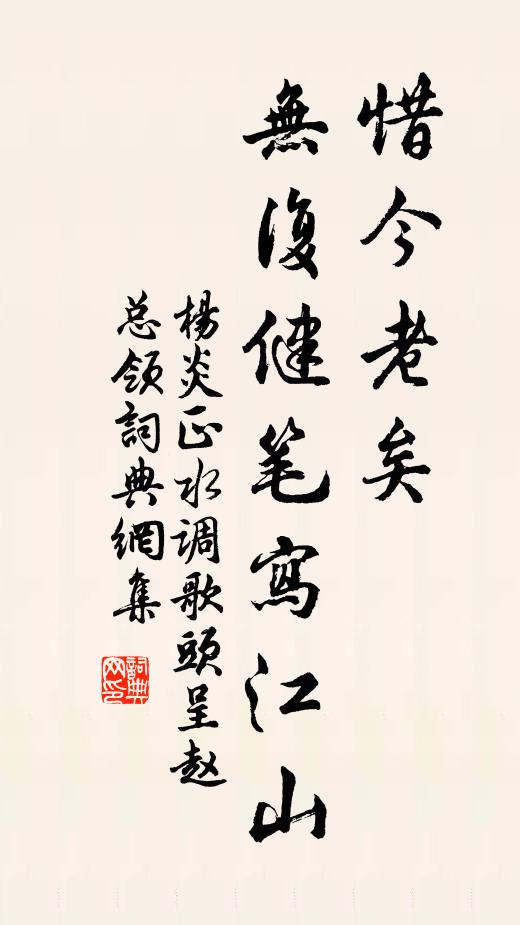 惜今老矣
無復健笔寫江山
楊炎正水调歌頭呈赵
总领詞典網集
詞典网印